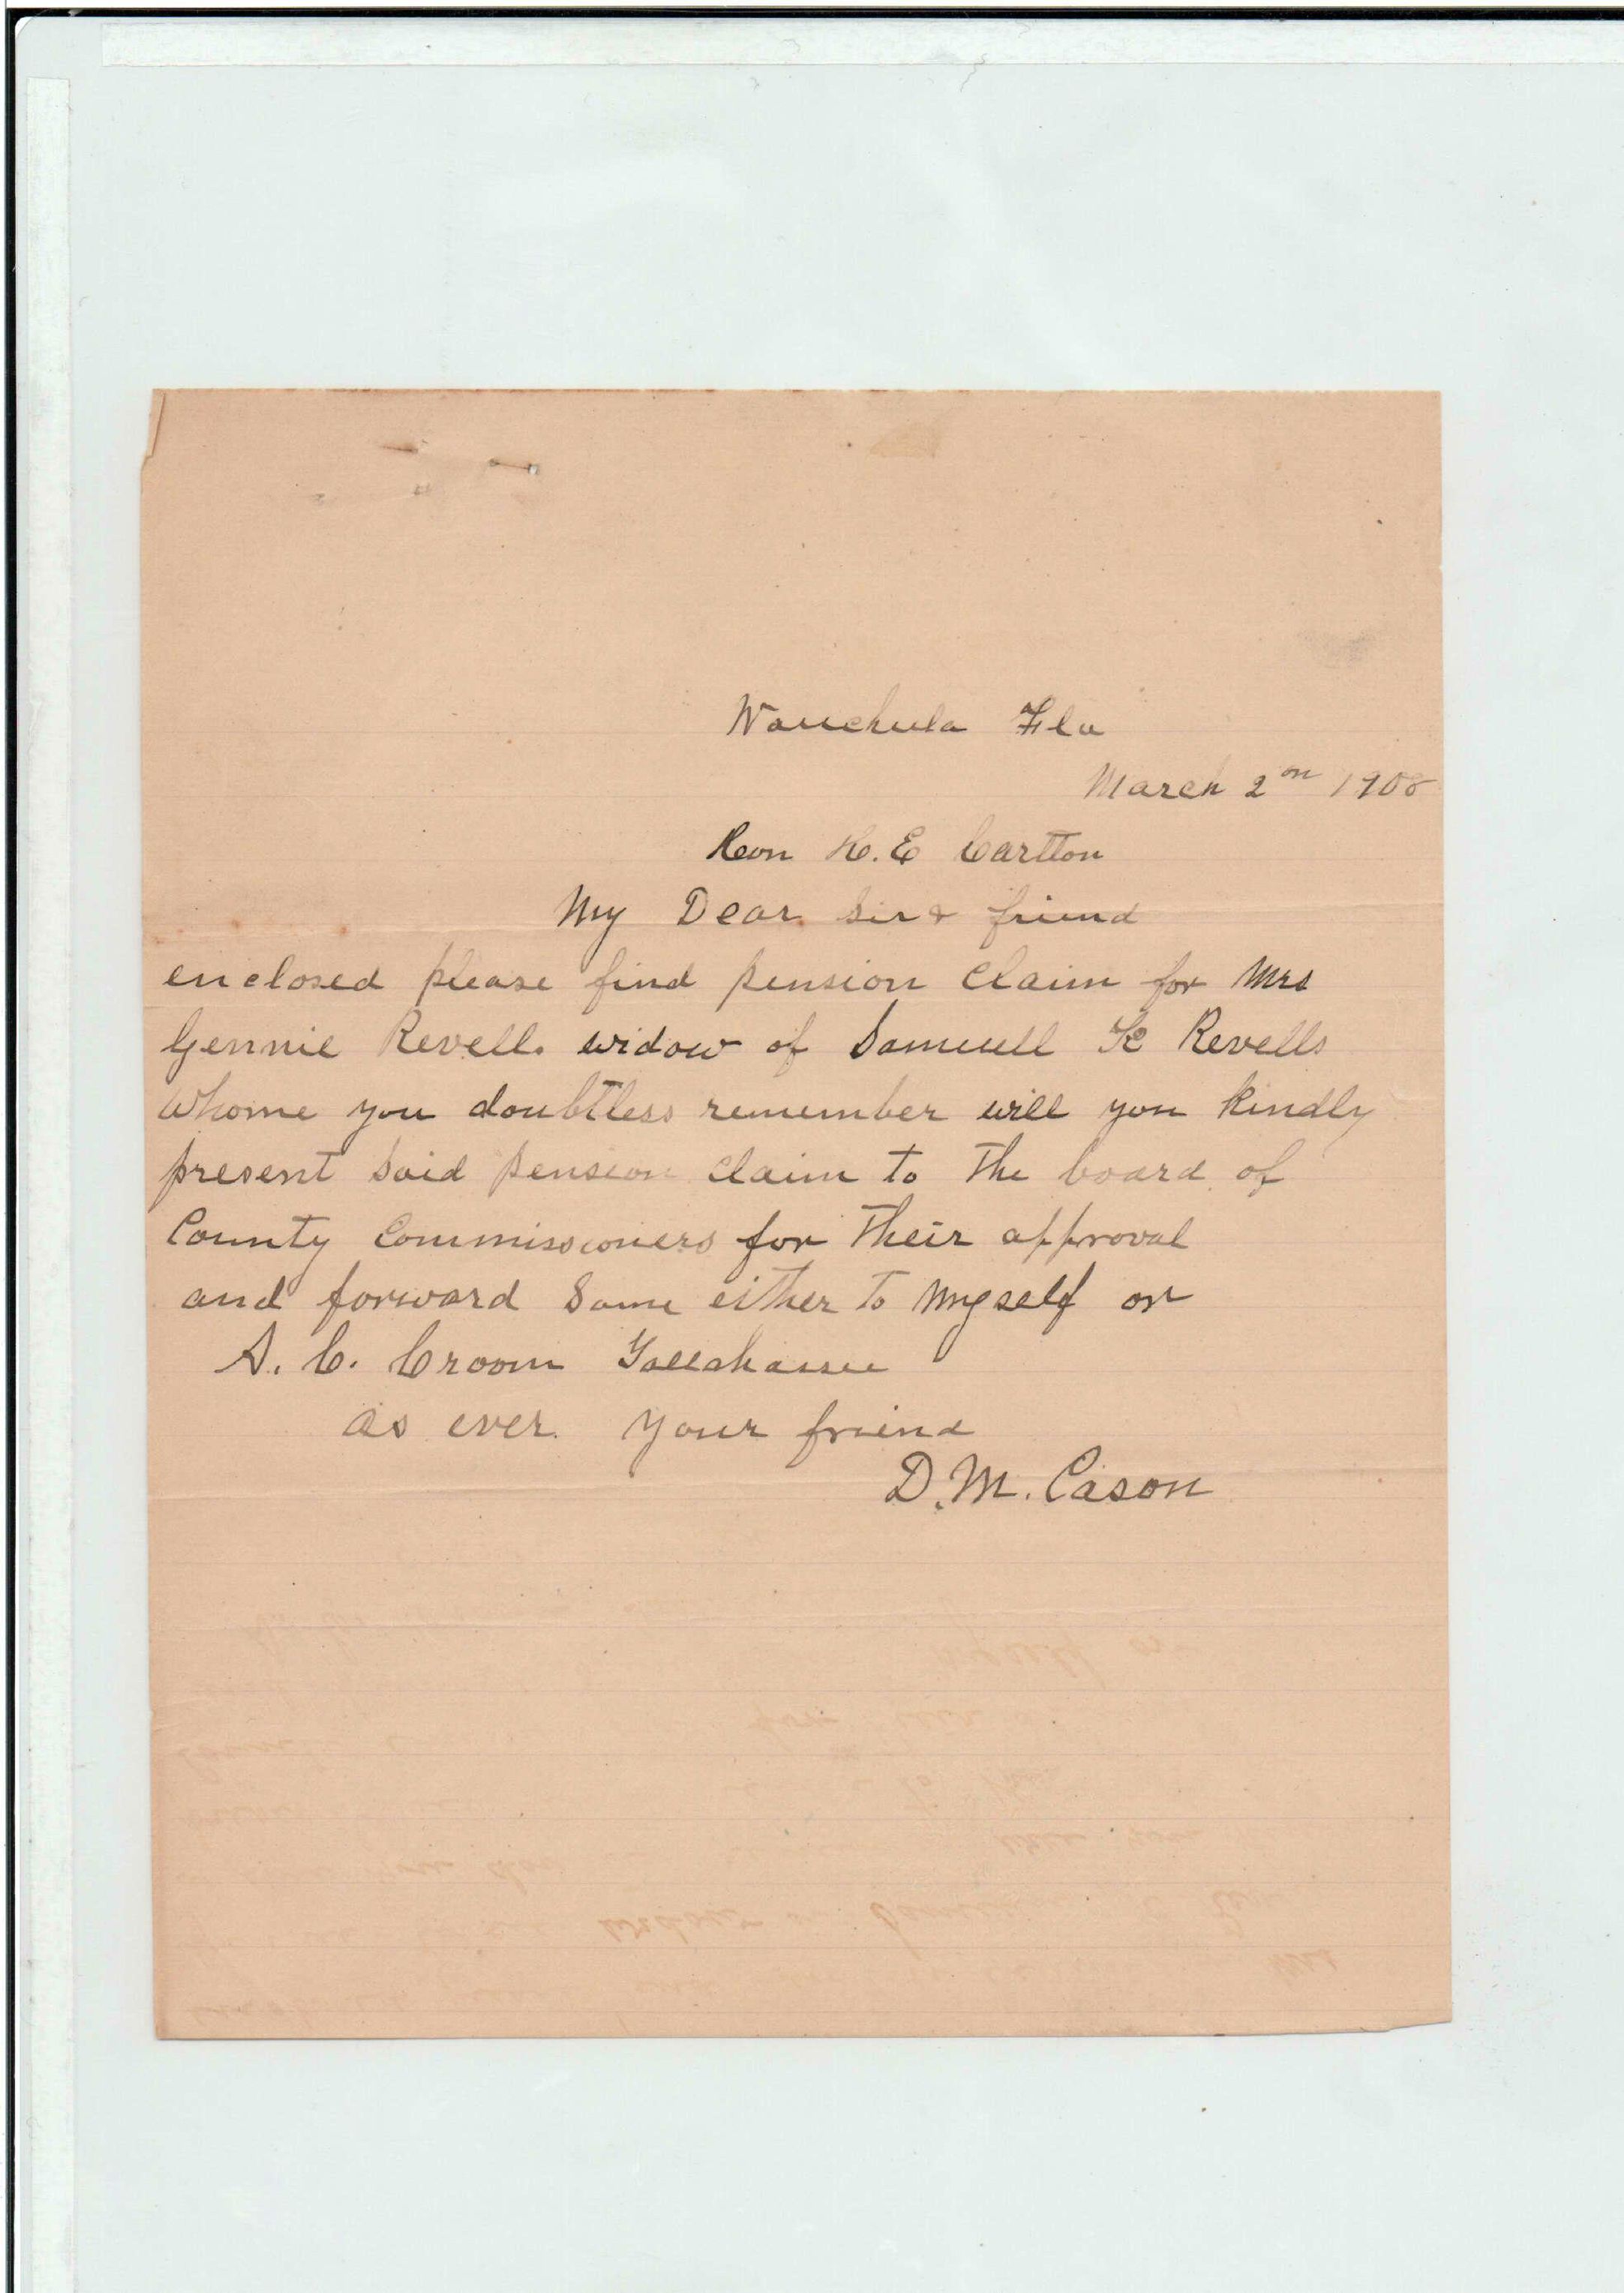 Wauchula Fla
March 2nd 1908
Hon H. E Carlton
My Dear Sir & friend
enclosed please find pension claim for Mrs
Gennie Revells widow of Samuell K Revells
whome you doubtless remember will you kindly
present said pension claim to the board of
County Commissioners for their approval
and forward same either to myself or
A. C. Croom Tallahassee
as ever. your friend
D. M. Cason